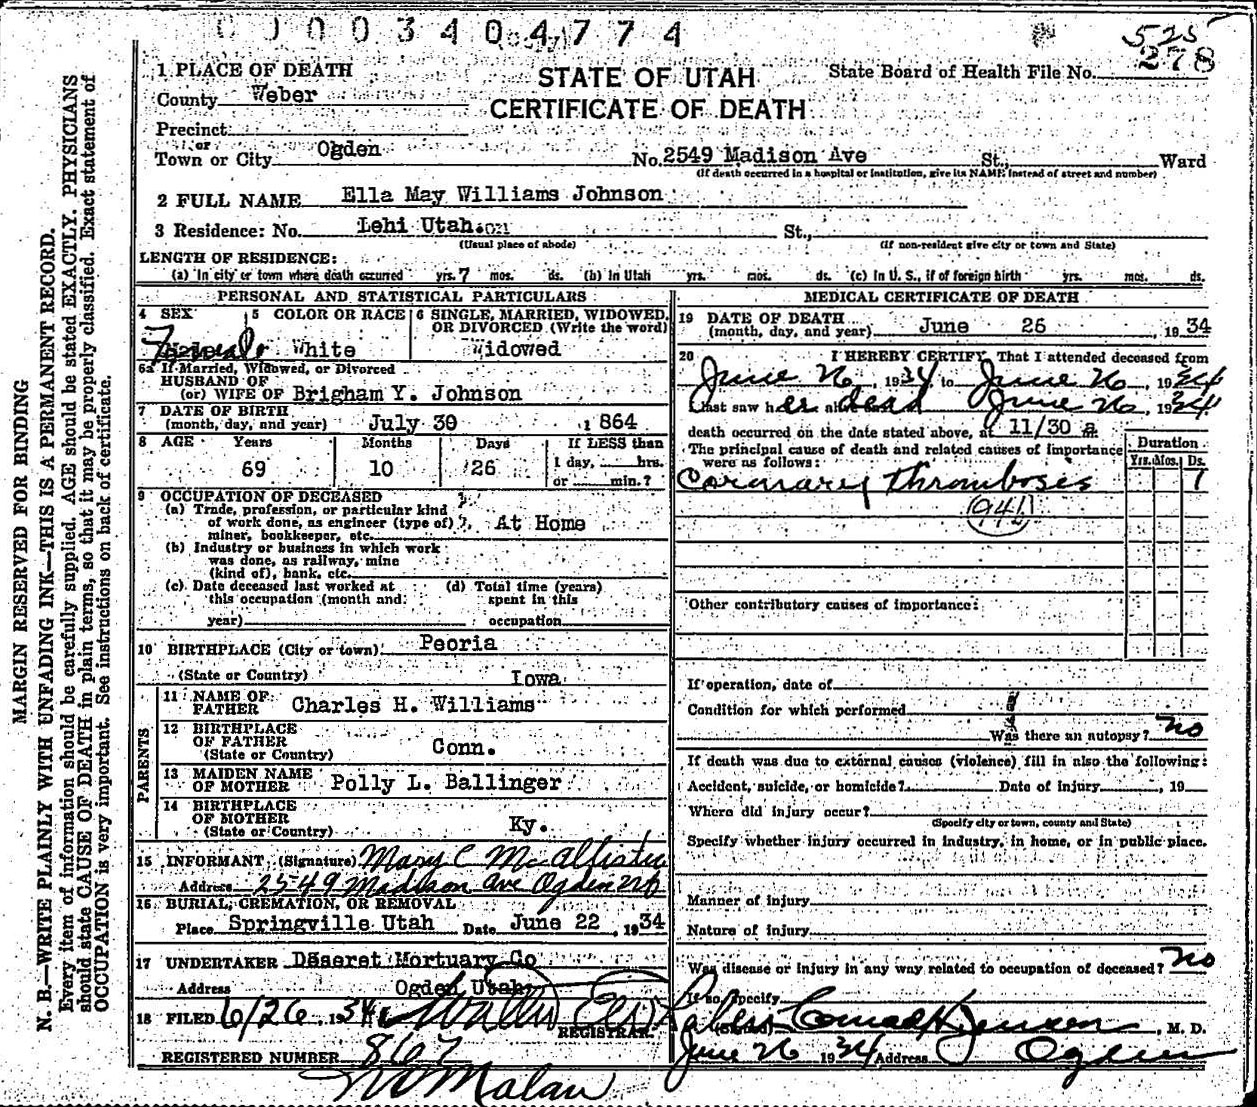 0003404774
525
278
1 PLACE OF DEATH
STATE OF UTAH
State Board of Health File No.
County Weber
CERTIFICATE OF DEATH
Precinct
or
Town or City Ogden No. 2549 Madison Ave St., Ward
(If death occurred in a hospital or institution, give its NAME instead of street and number)
2 FULL NAME Ella May Williams Johnson
3 Residence: No. Lehi Utah. St.,
(Usual place of abode) (If non-resident give city or town and State)
LENGTH OF RESIDENCE:
(a) In city or town where death occurred yrs. 7 mos. ds. (b) In Utah yrs. mos. ds. (c) In U. S., if of foreign birth yrs. mos. ds.
PERSONAL AND STATISTICAL PARTICULARS
4 SEX 5 COLOR OR RACE 6 SINGLE, MARRIED, WIDOWED, OR DIVORCED (Write the word)
Female White Widowed
6a If Married, Widowed, or Divorced
HUSBAND OF
(or) WIFE OF Brigham Y. Johnson
7 DATE OF BIRTH
(month, day, and year) July 30 1864
8 AGE Years Months Days If LESS than
69 10 26 1 day, hrs.
or min.?
9 OCCUPATION OF DECEASED
(a) Trade, profession, or particular kind
of work done, as engineer (type of), At Home
miner, bookkeeper, etc.
(b) Industry or business in which work
was done, as railway, mine
(kind of), bank, etc.
(c) Date deceased last worked at (d) Total time (years)
this occupation (month and spent in this
year) occupation
10 BIRTHPLACE (City or town) Peoria
(State or Country) Iowa
PARENTS
11 NAME OF
FATHER Charles H. Williams
12 BIRTHPLACE
OF FATHER Conn.
(State or Country)
13 MAIDEN NAME
OF MOTHER Polly L. Ballinger
14 BIRTHPLACE
OF MOTHER Ky.
(State or Country)
15 INFORMANT (Signature) Mary C McAllister
Address 2549 Madison Ave Ogden
16 BURIAL, CREMATION, OR REMOVAL
Place Springville Utah Date June 22, 1934
17 UNDERTAKER Deseret Mortuary Co
Address Ogden Utah
18 FILED 6/26, 1934
REGISTRAR.
REGISTERED NUMBER 867
Malan
MEDICAL CERTIFICATE OF DEATH
19 DATE OF DEATH
(month, day, and year) June 26 1934
20 I HEREBY CERTIFY, That I attended deceased from
June 26, 1934 to June 26, 1934
I last saw her dead June 26, 1934
death occurred on the date stated above, at 11/30 a m.
The principal cause of death and related causes of importance
were as follows:
Duration
Yrs. Mos. Ds.
Coronary Thromboses 1
Other contributory causes of importance:
If operation, date of
Condition for which performed
Was there an autopsy? no
If death was due to external causes (violence) fill in also the following:
Accident, suicide, or homicide? Date of injury, 19
Where did injury occur?
(Specify city or town, county and State)
Specify whether injury occurred in industry, in home, or in public place.
Manner of injury
Nature of injury
Was disease or injury in any way related to occupation of deceased? no
If so, specify
(Signed) Conrad H Jensen, M. D.
June 26 1934 Address Ogden
MARGIN RESERVED FOR BINDING
N. B.—WRITE PLAINLY WITH UNFADING INK—THIS IS A PERMANENT RECORD.
Every item of information should be carefully supplied. AGE should be stated EXACTLY. PHYSICIANS
should state CAUSE OF DEATH in plain terms, so that it may be properly classified. Exact statement of
OCCUPATION is very important. See instructions on back of certificate.